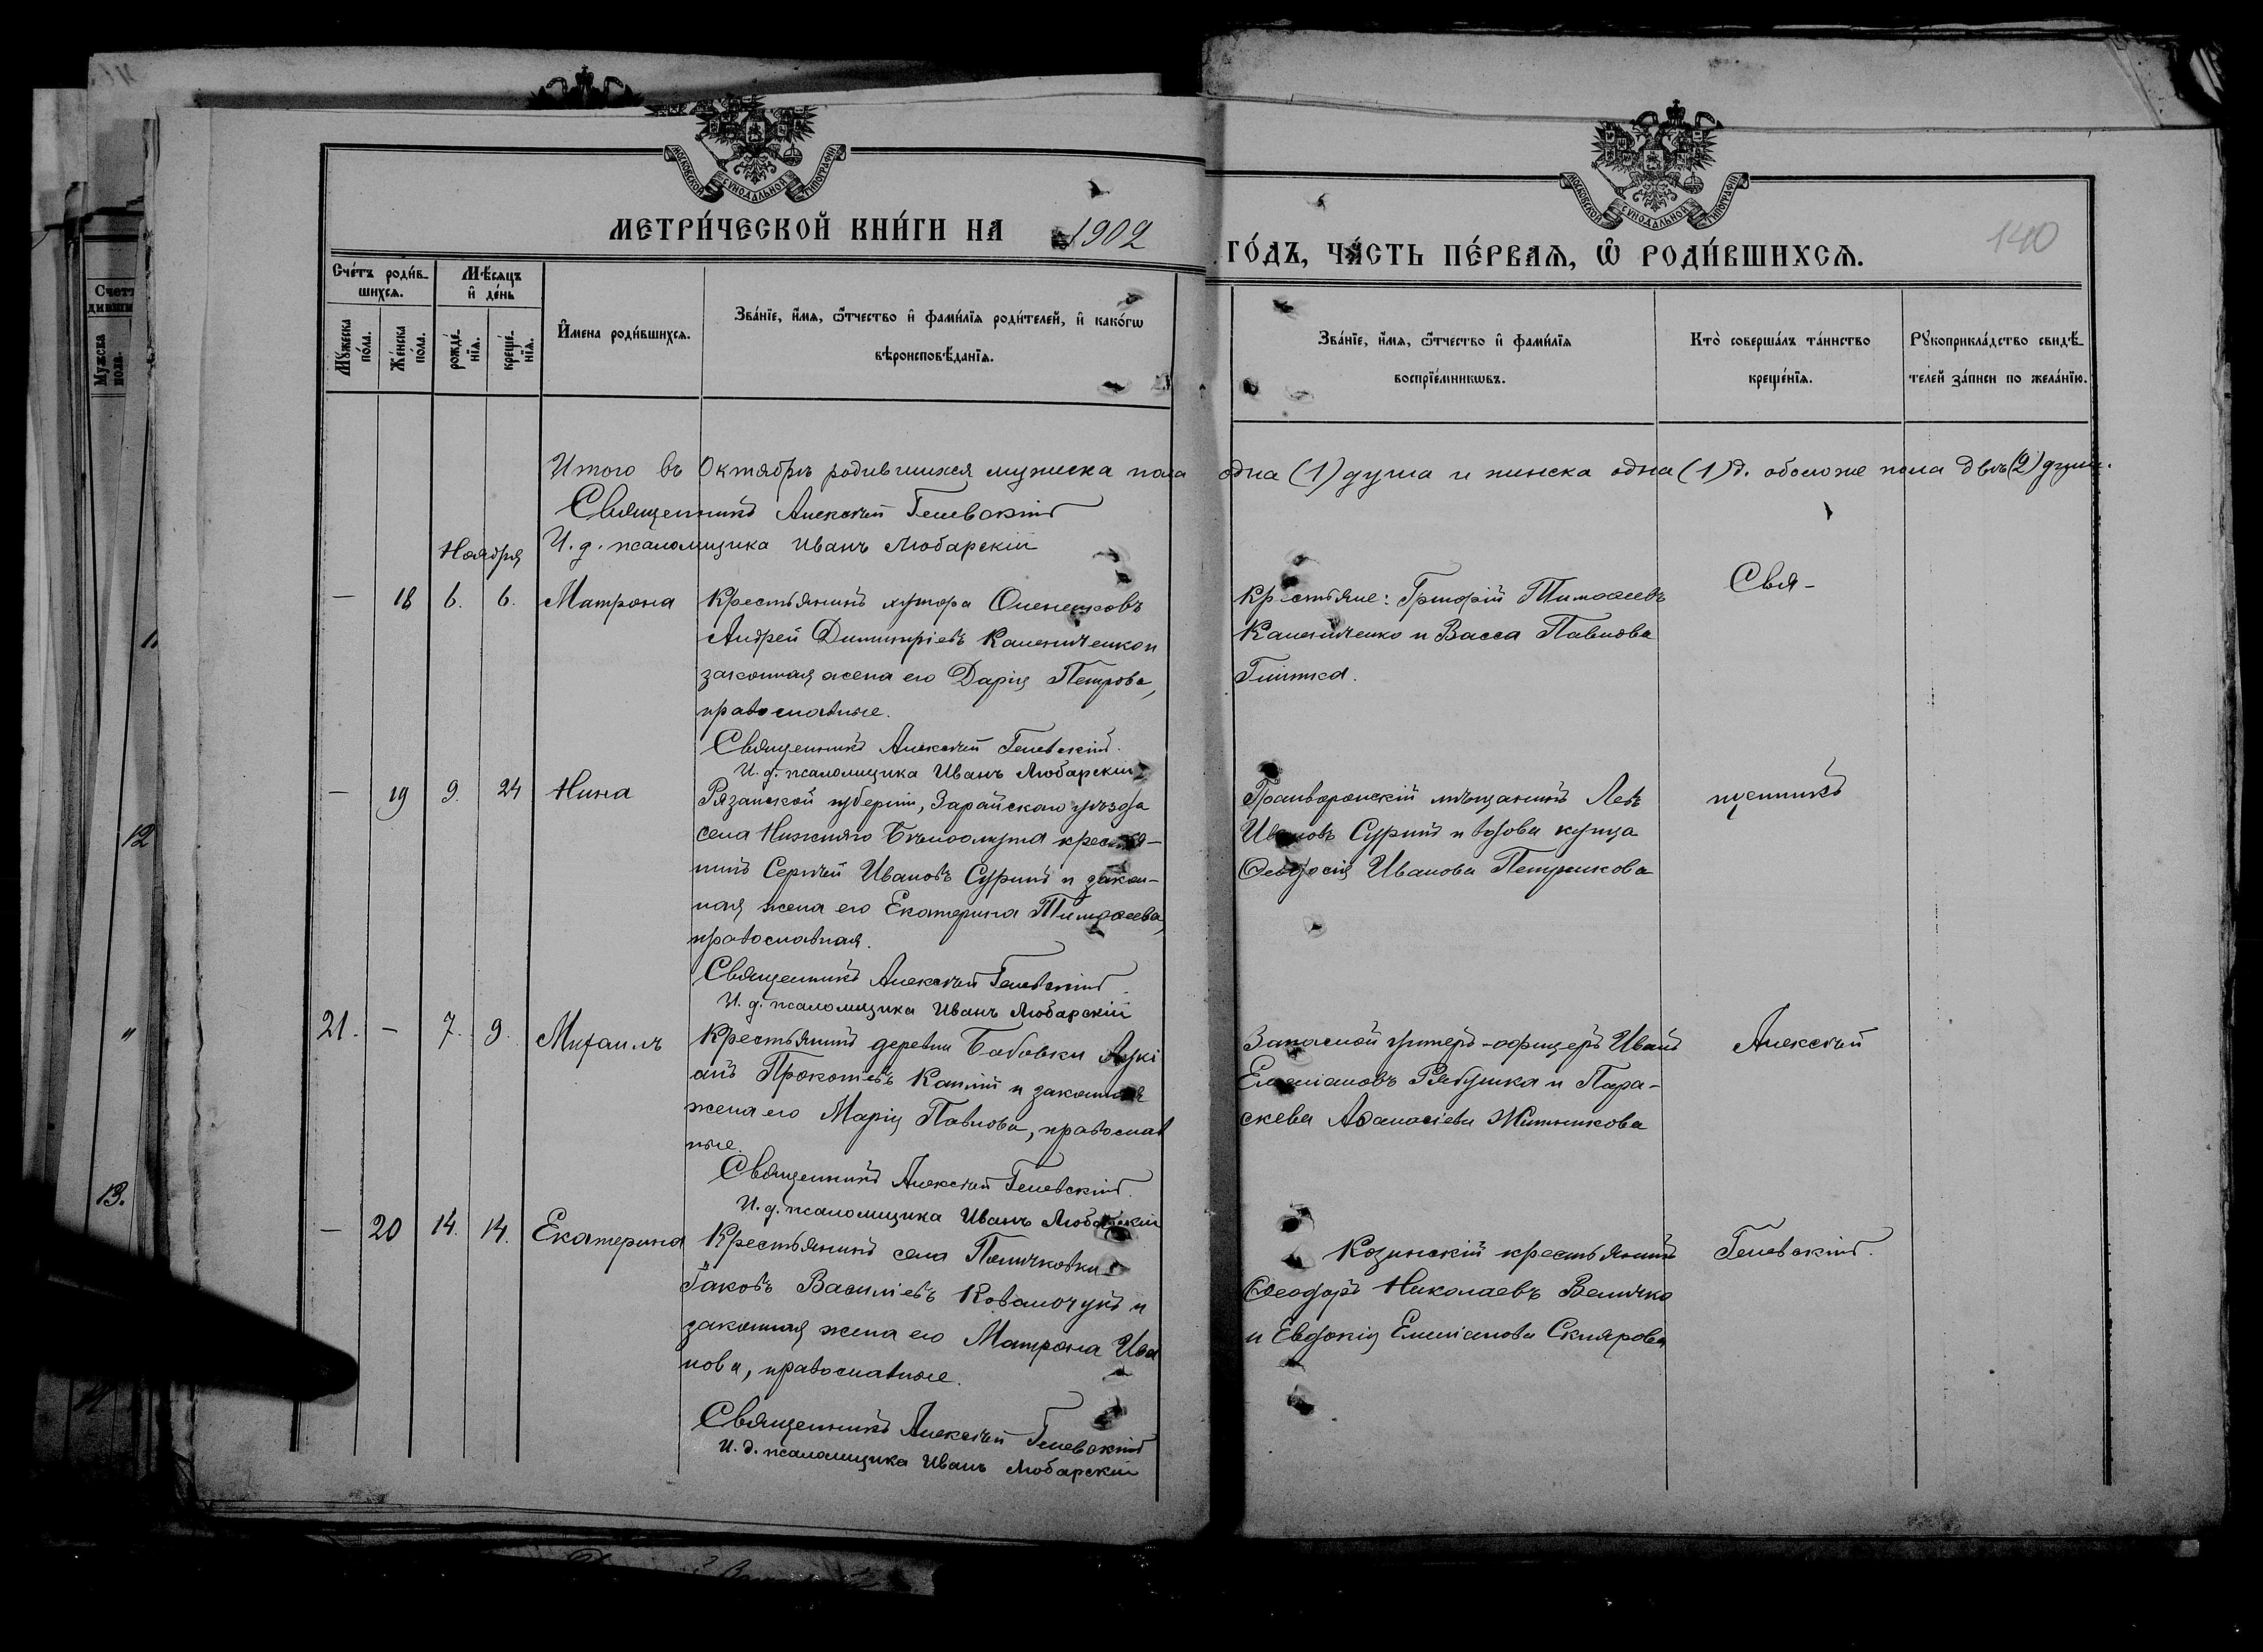 МОСКОВСКОЙ СУНОДАЛЬНОЙ ТИПОГРАФІИ
МОСКОВСКОЙ СУНОДАЛЬНОЙ ТИПОГРАФІИ
МЕТРИ́ЧЕСКОЙ КНИ́ГИ НА 1902
ГО́ДЪ, ЧА́СТЬ ПЕ́РВАѦ, Ѿ РОДИ́ВШИХСѦ.
140
Сче́тъ роди́в-
шихсѧ.
Мѣ́сяцъ
и҆ де́нь
Мꙋ́жеска
по́ла.
Же́нска
по́ла.
рожде́-
нїѧ.
креще́-
нїѧ.
И҆мена роди́вшихсѧ.
Зва́нїе, и҆́мѧ, ѻ҆́тчество и҆ фами́лїѧ роди́телей, и҆ како́гѡ
вѣроисповѣ́данїѧ.
Зва́нїе, и҆́мѧ, ѻ҆́тчество и҆ фами́лїѧ
воспрїе́мникѡвъ.
Кто̀ соверша́лъ та́инство
креще́нїѧ.
Рꙋкоприкла́дство свидѣ́-
телей за́писи по жела́нїю.
Итого въ Октябрѣ родившихся мужска пола одна (1) душа и женска одна (1) д. обоего же пола двѣ (2) души.
Священникъ Алексѣй Гелевскій
И. д. псаломщика Иванъ Любарскій
Ноября
— 18 6. 6. Матрона
Крестьянинъ хутора
Андрей Димитріевъ Калениченко и
законная жена его Дарія Петрова,
православные.
Священникъ Алексѣй Гелевскій.
И. д. псаломщика Иванъ Любарскій
Крестьяне: Григорій Тимофеевъ
Калениченко и Васса Павлова
Свя-
— 19 9. 24 Нина
Рязанской губерніи, Зарайскаго уѣзда
села Нижняго Бѣлоомута крестья-
нинъ Сергѣй Ивановъ Суринъ и закон-
ная жена его Екатерина Тимофеева,
православная.
Священникъ Алексѣй Гелевскій.
И. д. псаломщика Иванъ Любарскій
мѣщанинъ Левъ
Ивановъ Суринъ и вдова купца
Ѳеодосія Иванова Петрикова
щенникъ
21. — 7. 9. Михаилъ
Крестьянинъ деревни Бабовки Лукі
анъ Прокопіевъ и законная
жена его Марія Павлова, православ
ные.
Священникъ Алексѣй Гелевскій.
И. д. псаломщика Иванъ Любарскій
Запасной унтеръ-офицеръ Иванъ
Емеліановъ Рябушка и Пара-
скева Аѳанасіева Житникова
Алексѣй
— 20 14. 14. Екатерина
Крестьянинъ села Поличковки
Іаковъ Василіевъ Ковальчукъ и
законная жена его Матрона Ива
нова, православные.
Священникъ Алексѣй Гелевскій
И. д. псаломщика Иванъ Любарскій
Козинскій крестьянинъ
Ѳеодоръ Николаевъ Величко
и Евдокія Емеліанова Склярова
Гелевскій.
Мужска
пола.
12
13.